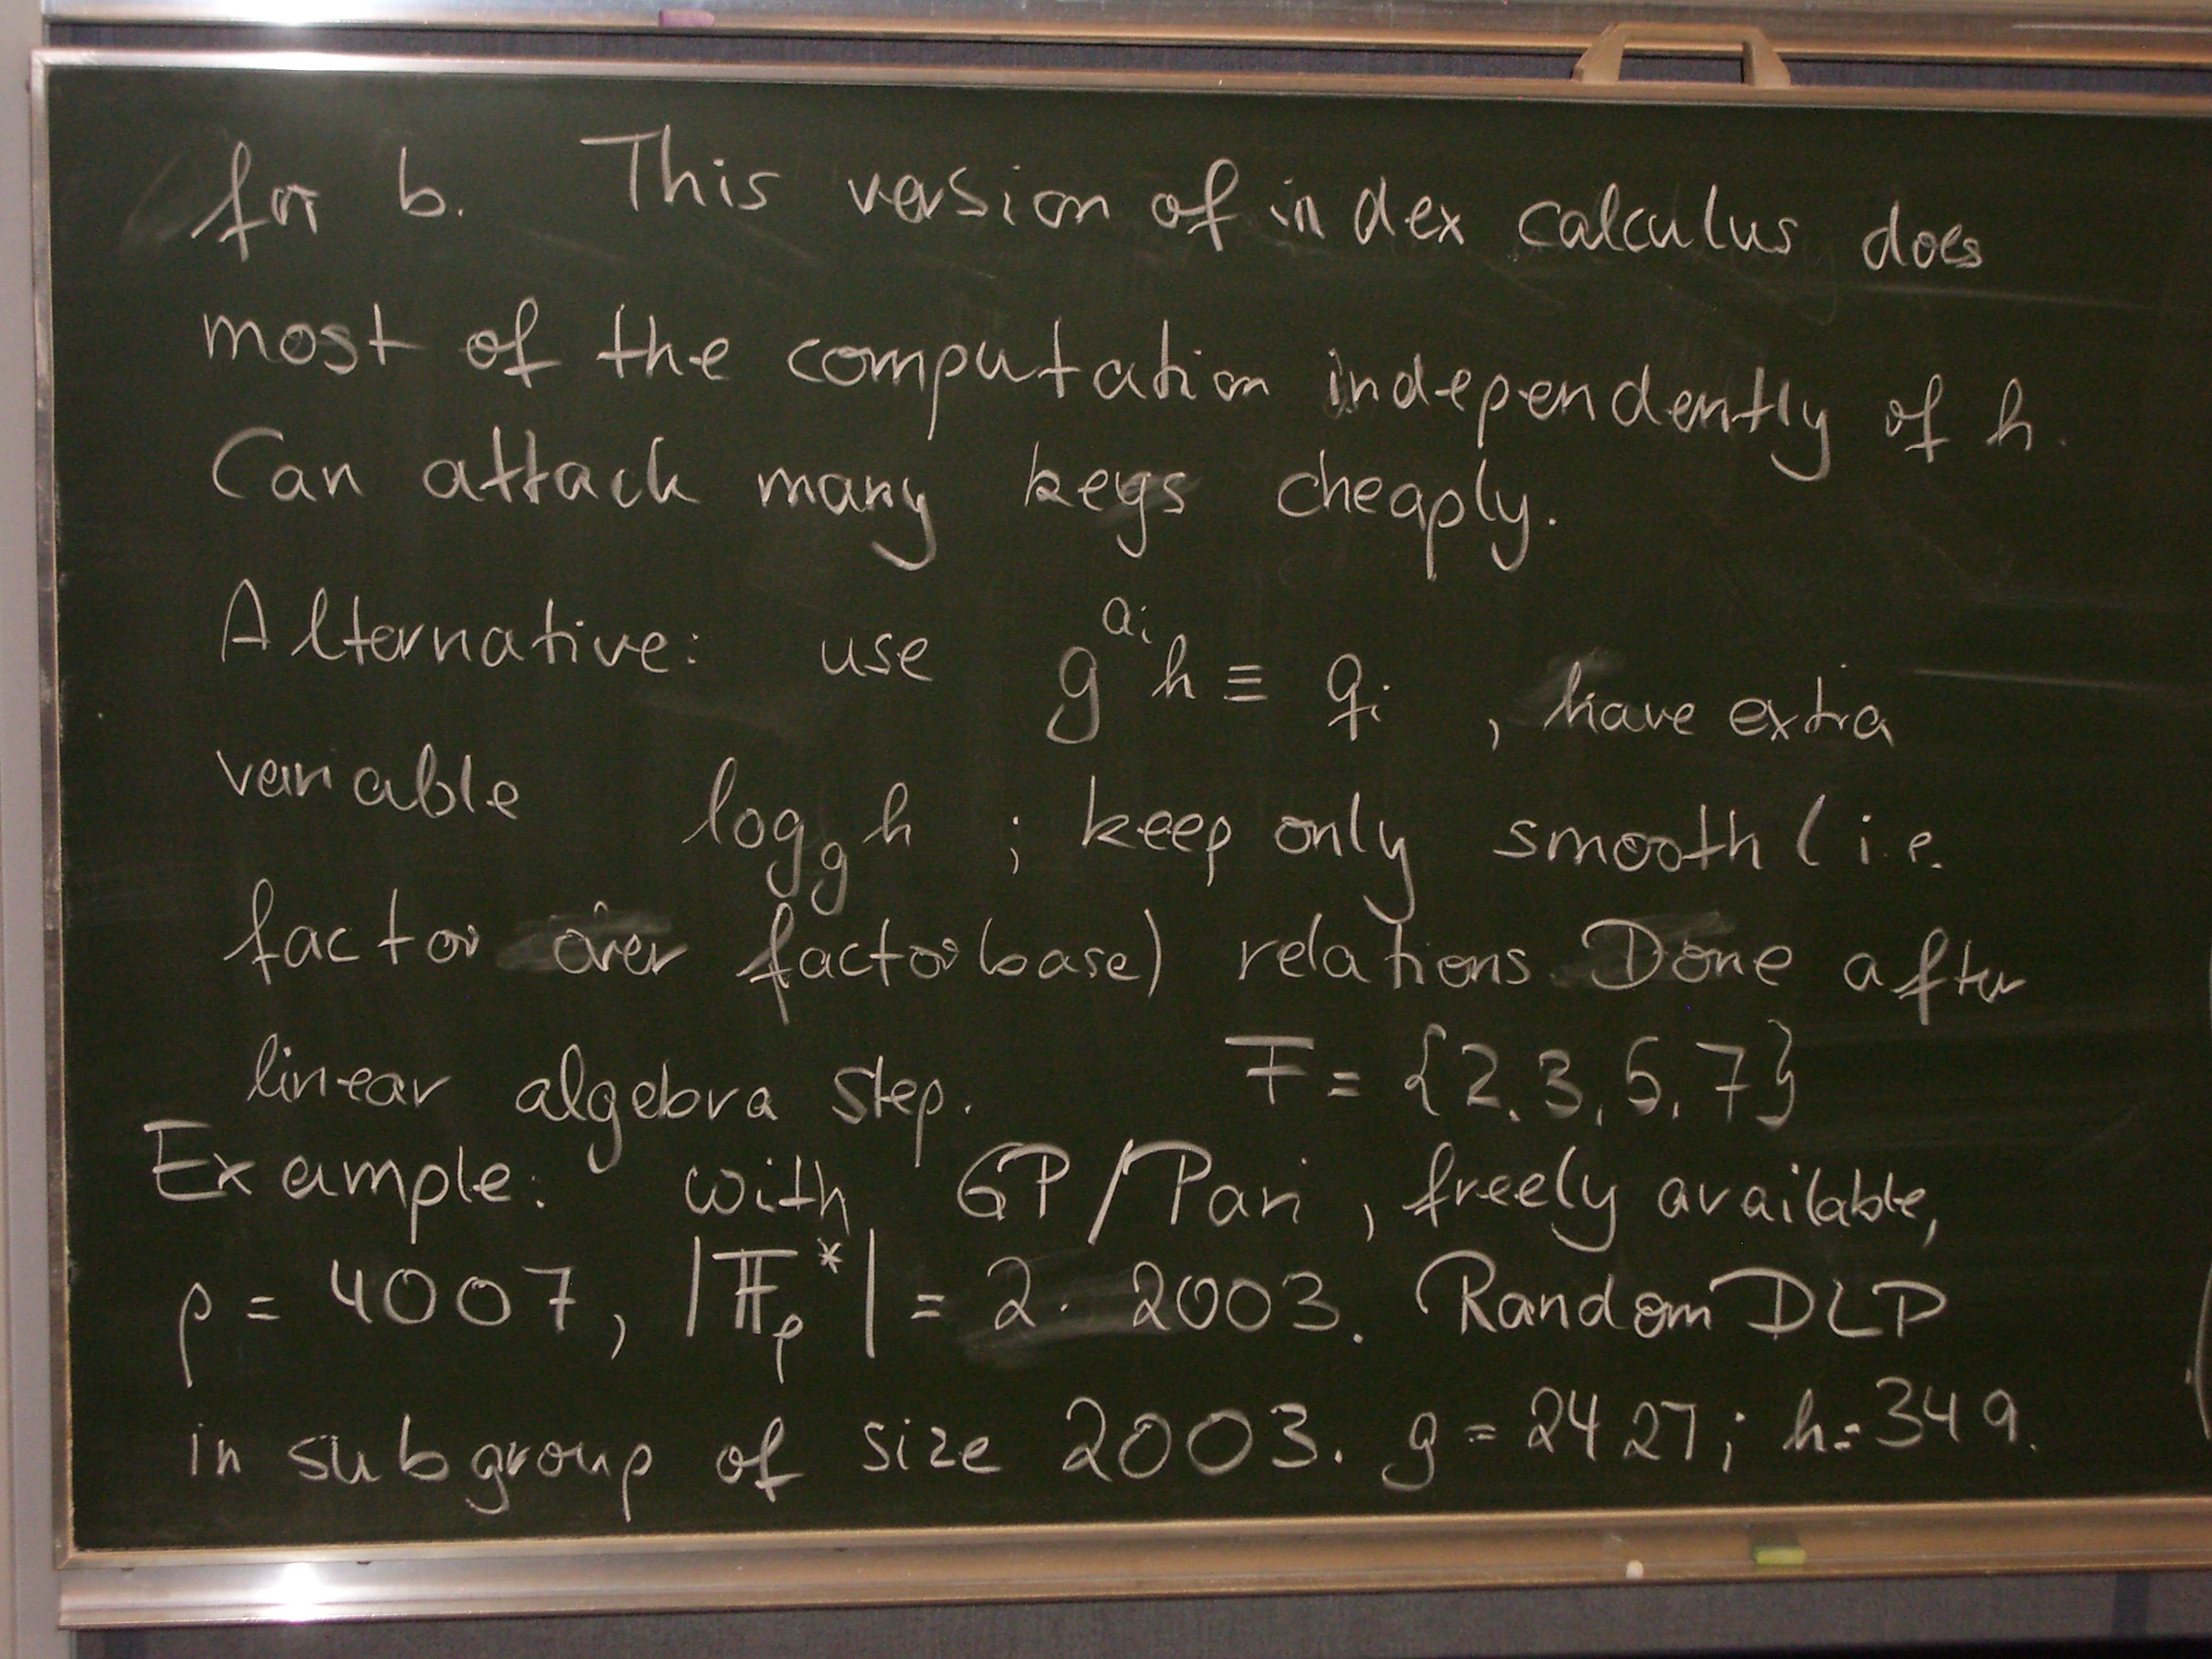 for b. This version of index calculus does
most of the computation independently of h.
Can attack many keys cheaply.
Alternative: use g^{a_i} h ≡ q_i , have extra
variable log_g h ; keep only smooth (i.e.
factor over factorbase) relations. Done after
linear algebra step. F = {2, 3, 5, 7}
Example: with GP/Pari, freely available,
p = 4007, |F_p^*| = 2 · 2003. Random DLP
in subgroup of size 2003. g = 2427; h = 349.